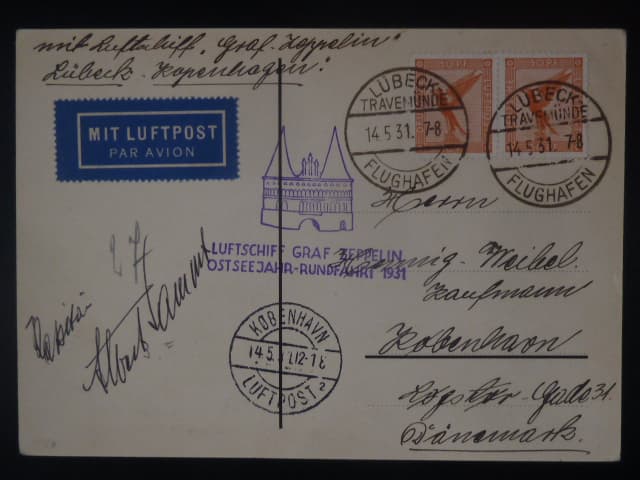 mit Luftschiff „Graf Zeppelin“
Lübeck - Kopenhagen!
MIT LUFTPOST
PAR AVION
10 PF.
10 PF.
LÜBECK-
TRAVEMÜNDE
14.5.31. 7-8
FLUGHAFEN
LÜBECK-
TRAVEMÜNDE
14.5.31. 7-8
FLUGHAFEN
Herrn
LUFTSCHIFF GRAF ZEPPELIN
OSTSEEJAHR-RUNDFAHRT 1931
Henning-Weibel.
Kaufmann
København
Gade 31.
Dänemark.
Kapitän
Albert Sammt
KØBENHAVN
14.5. 12-18
LUFTPOST 2